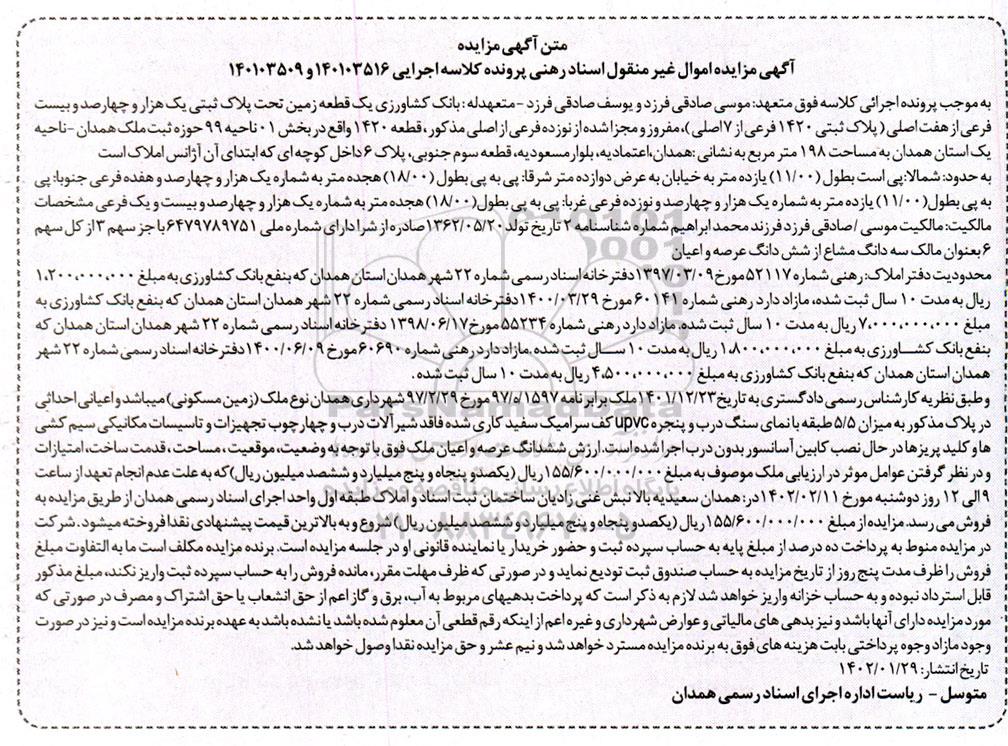 متن آگهی مزایده
آگهی مزایده اموال غیر منقول اسناد رهنی پرونده کلاسه اجرایی ۱۴۰۱۰۳۵۱۶ و ۱۴۰۱۰۳۵۰۹
به موجب پرونده اجرائی کلاسه فوق متعهد: موسی صادقی فرزد و یوسف صادقی فرزد - متعهدله: بانک کشاورزی یک قطعه زمین تحت پلاک ثبتی یک هزار و چهارصد و بیست
فرعی از هفت اصلی (پلاک ثبتی ۱۴۲۰ فرعی از ۷ اصلی)، مفروز و مجزا شده از نوزده فرعی از اصلی مذکور، قطعه ۱۴۲۰ واقع در بخش ۰۱ ناحیه ۹۹ حوزه ثبت ملک همدان - ناحیه
یک استان همدان به مساحت ۱۹۸ متر مربع به نشانی: همدان، اعتمادیه، بلوار مسعودیه، قطعه سوم جنوبی، پلاک ۶ داخل کوچه ای که ابتدای آن آژانس املاک است
به حدود: شمالا: پی است بطول (۱۱/۰۰) یازده متر به خیابان به عرض دوازده متر شرقا: پی به پی بطول (۱۸/۰۰) هجده متر به شماره یک هزار و چهارصد و هفده فرعی جنوبا: پی
به پی بطول (۱۱/۰۰) یازده متر به شماره یک هزار و چهارصد و نوزده فرعی غربا: پی به پی بطول (۱۸/۰۰) هجده متر به شماره یک هزار و چهارصد و بیست و یک فرعی مشخصات
مالکیت: مالکیت موسی / صادقی فرزد فرزند محمد ابراهیم شماره شناسنامه ۲ تاریخ تولد ۱۳۶۲/۰۵/۲۰ صادره از شرا دارای شماره ملی ۶۴۷۹۷۸۹۷۵۱ با جز سهم ۳ از کل سهم
۶ بعنوان مالک سه دانگ مشاع از شش دانگ عرصه و اعیان
محدودیت دفتر املاک: رهنی شماره ۵۲۱۱۷ مورخ ۱۳۹۷/۰۳/۰۹ دفترخانه اسناد رسمی شماره ۲۲ شهر همدان استان همدان که بنفع بانک کشاورزی به مبلغ ۱،۲۰۰،۰۰۰،۰۰۰
ریال به مدت ۱۰ سال ثبت شده، مازاد دارد رهنی شماره ۶۰۱۴۱ مورخ ۱۴۰۰/۰۳/۲۹ دفترخانه اسناد رسمی شماره ۲۲ شهر همدان استان همدان که بنفع بانک کشاورزی به
مبلغ ۷،۰۰۰،۰۰۰،۰۰۰ ریال به مدت ۱۰ سال ثبت شده. مازاد دارد رهنی شماره ۵۵۲۳۴ مورخ ۱۳۹۸/۰۶/۱۷ دفترخانه اسناد رسمی شماره ۲۲ شهر همدان استان همدان که
بنفع بانک کشاورزی به مبلغ ۱،۸۰۰،۰۰۰،۰۰۰ ریال به مدت ۱۰ سال ثبت شده. مازاد دارد رهنی شماره ۶۰۶۹۰ مورخ ۱۴۰۰/۰۶/۰۹ دفترخانه اسناد رسمی شماره ۲۲ شهر
همدان استان همدان که بنفع بانک کشاورزی به مبلغ ۴،۵۰۰،۰۰۰،۰۰۰ ریال به مدت ۱۰ سال ثبت شده.
و طبق نظریه کارشناس رسمی دادگستری به تاریخ ۱۴۰۱/۱۲/۲۳ ملک برابر نامه ۹۷/۵/۱۵۹۷ مورخ ۹۷/۲/۲۹ شهرداری همدان نوع ملک (زمین مسکونی) میباشد و اعیانی احداثی
در پلاک مذکور به میزان ۵/۵ طبقه با نمای سنگ درب و پنجره upvc کف سرامیک سفید کاری شده فاقد شیرآلات درب و چهارچوب تجهیزات و تاسیسات مکانیکی سیم کشی
ها و کلید پریزها در حال نصب کابین آسانسور بدون درب اجرا شده است. ارزش ششدانگ عرصه و اعیان ملک فوق با توجه به وضعیت، موقعیت، مساحت، قدمت ساخت، امتیازات
و در نظر گرفتن عوامل موثر در ارزیابی ملک موصوف به مبلغ ۱۵۵/۶۰۰/۰۰۰/۰۰۰ ریال (یکصد و پنجاه و پنج میلیارد و ششصد میلیون ریال) که به علت عدم انجام تعهد از ساعت
۹ الی ۱۲ روز دوشنبه مورخ ۱۴۰۲/۰۲/۱۱ در: همدان سعیدیه بالا نبش غنی زادیان ساختمان ثبت اسناد و املاک طبقه اول واحد اجرای اسناد رسمی همدان از طریق مزایده به
فروش می رسد. مزایده از مبلغ ۱۵۵/۶۰۰/۰۰۰/۰۰۰ ریال (یکصد و پنجاه و پنج میلیارد و ششصد میلیون ریال) شروع و به بالاترین قیمت پیشنهادی نقدا فروخته میشود. شرکت
در مزایده منوط به پرداخت ده درصد از مبلغ پایه به حساب سپرده ثبت و حضور خریدار یا نماینده قانونی او در جلسه مزایده است. برنده مزایده مکلف است ما به التفاوت مبلغ
فروش را ظرف مدت پنج روز از تاریخ مزایده به حساب صندوق ثبت تودیع نماید و در صورتی که ظرف مهلت مقرر، مانده فروش را به حساب سپرده ثبت واریز نکند، مبلغ مذکور
قابل استرداد نبوده و به حساب خزانه واریز خواهد شد لازم به ذکر است که پرداخت بدهیهای مربوط به آب، برق و گاز اعم از حق انشعاب یا حق اشتراک و مصرف در صورتی که
مورد مزایده دارای آنها باشد و نیز بدهی های مالیاتی و عوارض شهرداری و غیره اعم از اینکه رقم قطعی آن معلوم شده باشد یا نشده باشد به عهده برنده مزایده است و نیز در صورت
وجود مازاد وجوه پرداختی بابت هزینه های فوق به برنده مزایده مسترد خواهد شد و نیم عشر و حق مزایده نقدا وصول خواهد شد.
تاریخ انتشار: ۱۴۰۲/۰۱/۲۹
متوسل - ریاست اداره اجرای اسناد رسمی همدان
ParsNamadData
پایگاه اطلاع رسانی مناقصه و مزایده